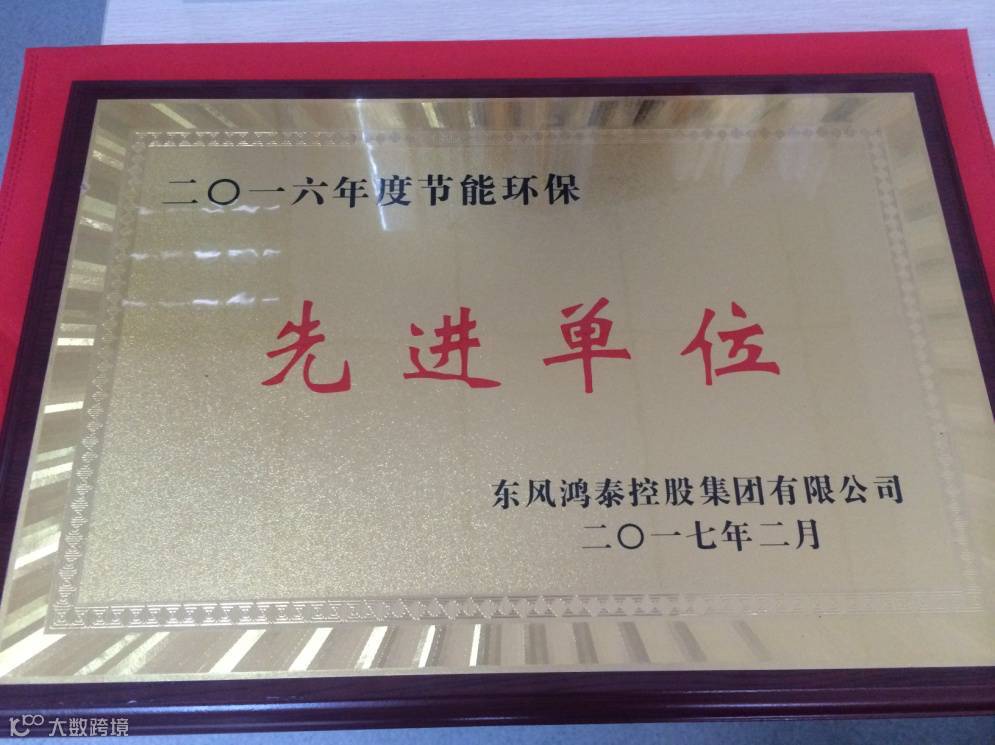 二〇一六年度节能环保
先进单位
东风鸿泰控股集团有限公司
二〇一七年二月
大数跨境